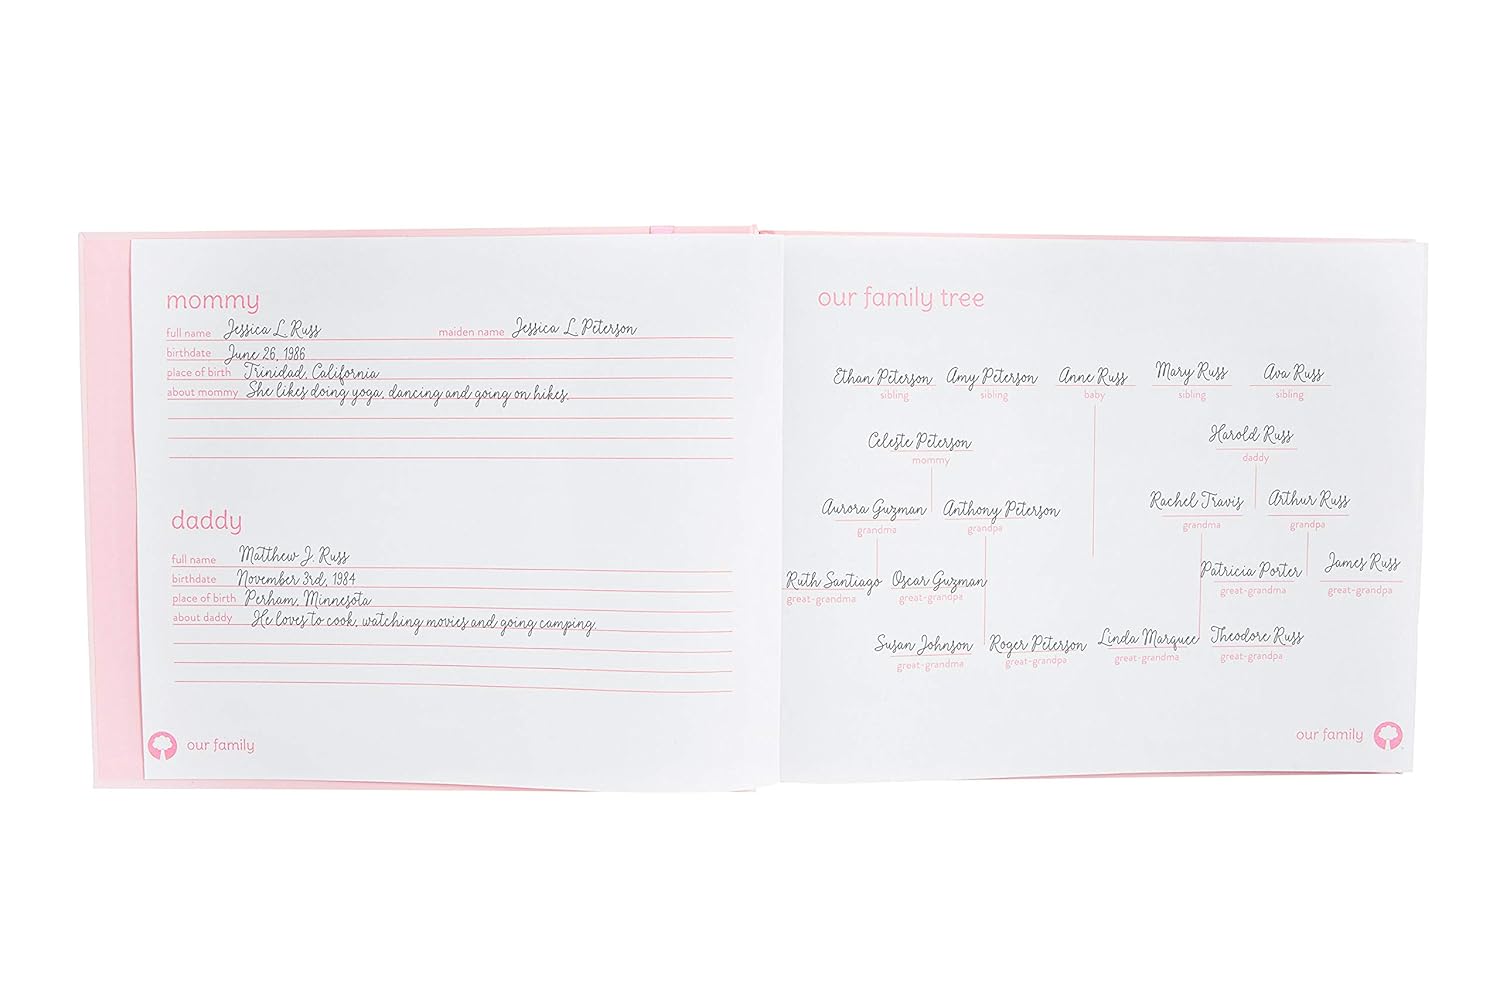 mommy
full name Jessica L. Russ maiden name Jessica L. Peterson
birthdate June 26, 1986
place of birth Trinidad, California
about mommy She likes doing yoga, dancing and going on hikes.
daddy
full name Matthew J. Russ
birthdate November 3rd, 1984
place of birth Perham, Minnesota
about daddy He loves to cook, watching movies and going camping.
our family
our family tree
Ethan Peterson Amy Peterson Anne Russ Mary Russ Ava Russ
sibling sibling baby sibling sibling
Celeste Peterson Harold Russ
mommy daddy
Aurora Guzman Anthony Peterson Rachel Travis Arthur Russ
grandma grandpa grandma grandpa
Ruth Santiago Oscar Guzman Patricia Porter James Russ
great-grandma great-grandpa great-grandma great-grandpa
Susan Johnson Roger Peterson Linda Marquee Theodore Russ
great-grandma great-grandpa great-grandma great-grandpa
our family